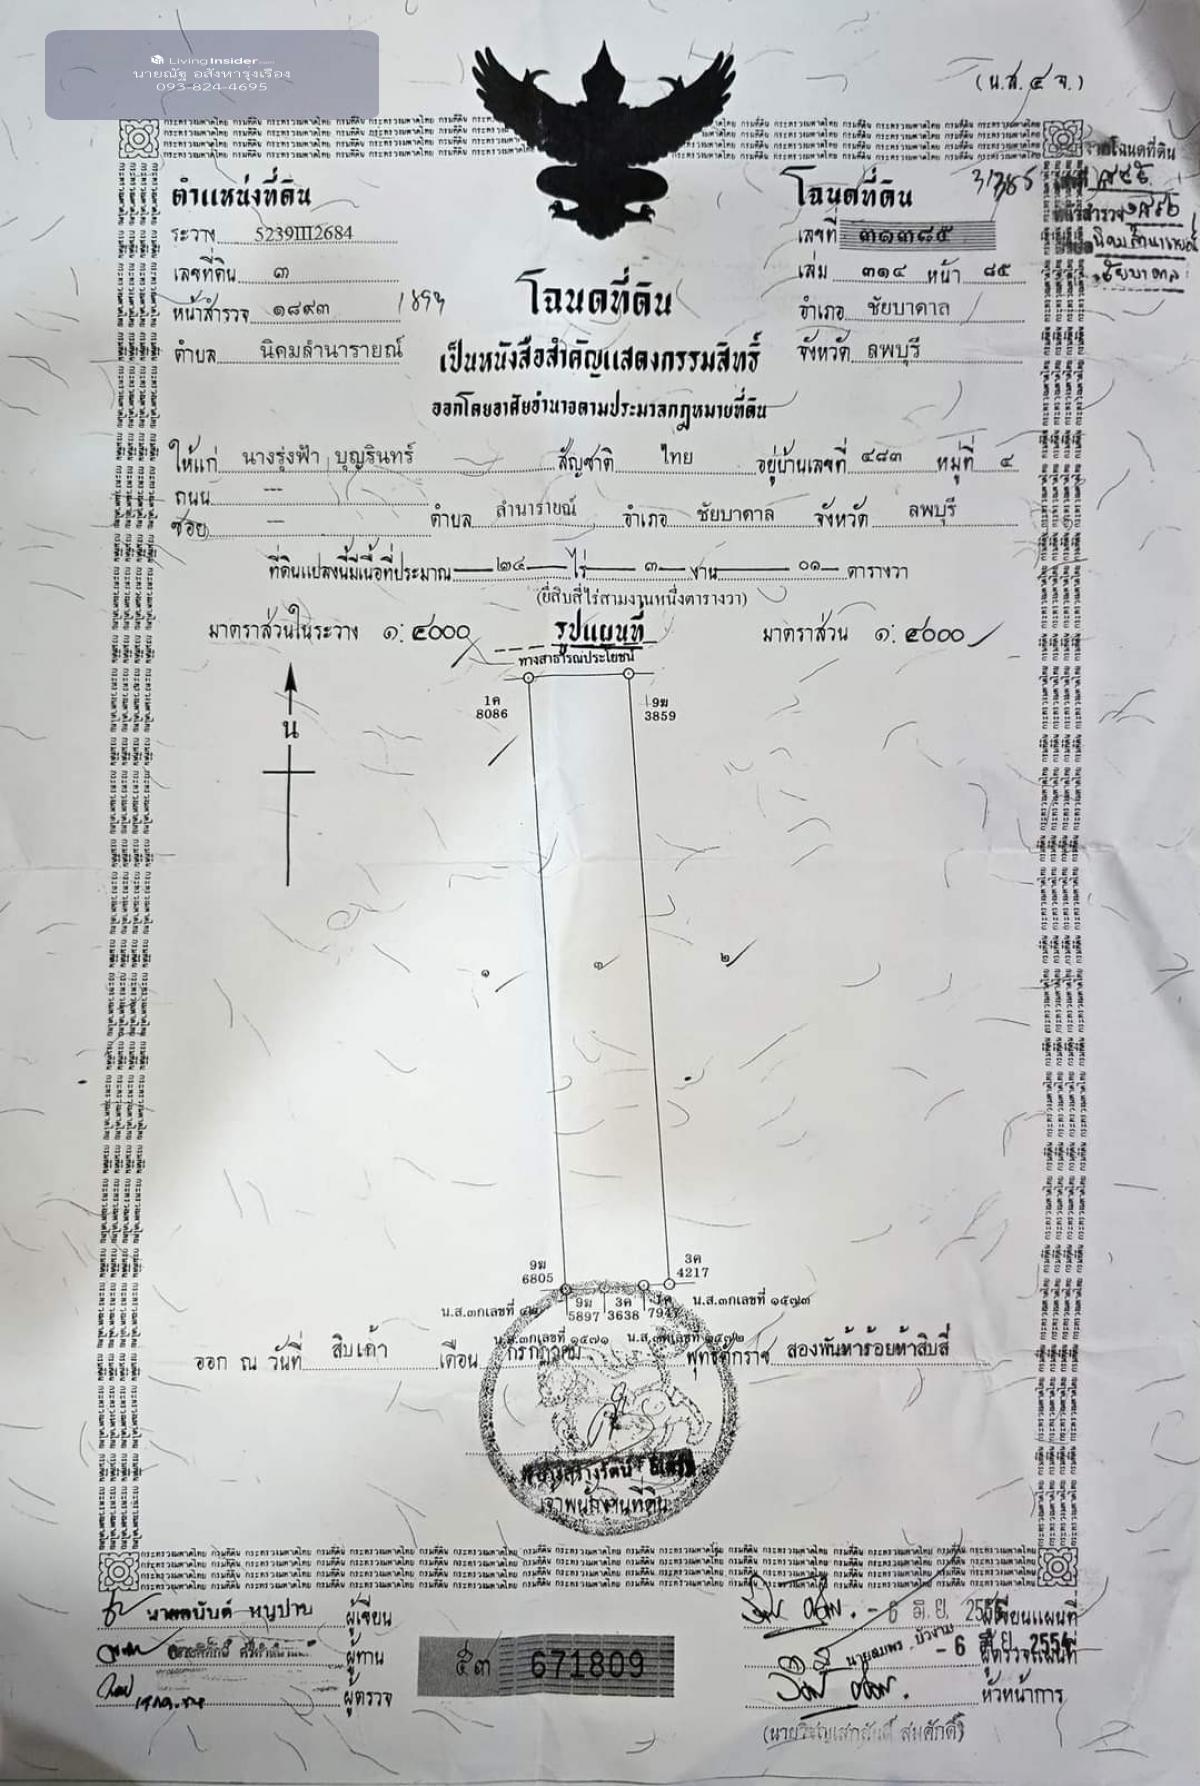 LivingInsider
นายณัฐ อสังหารุงเรือง
093-824-4695
(น.ส.๔ จ.)
ตำแหน่งที่ดิน
ระวาง 5239III2684
เลขที่ดิน ๓
หน้าสำรวจ ๑๘๙๓ 1893
ตำบล นิคมลำนารายณ์
โฉนดที่ดิน
เป็นหนังสือสำคัญแสดงกรรมสิทธิ์
ออกโดยอาศัยอำนาจตามประมวลกฎหมายที่ดิน
โฉนดที่ดิน 31385
เลขที่ ๓๑๓๘๕
เล่ม ๓๑๔ หน้า ๘๕
อำเภอ ชัยบาดาล
จังหวัด ลพบุรี
นิคมลำนารายณ์
ชัยบาดาล
ให้แก่ นางรุ่งฟ้า บุญรินทร์ สัญชาติ ไทย อยู่บ้านเลขที่ ๔๘๓ หมู่ที่ ๔
ถนน ---
ซอย --- ตำบล ลำนารายณ์ อำเภอ ชัยบาดาล จังหวัด ลพบุรี
ที่ดินแปลงนี้มีเนื้อที่ประมาณ ๒๔ ไร่ ๓ งาน ๐๑ ตารางวา
(ยี่สิบสี่ไร่สามงานหนึ่งตารางวา)
มาตราส่วนในระวาง ๑:๔๐๐๐ รูปแผนที่ มาตราส่วน ๑:๔๐๐๐
ทางสาธารณประโยชน์
1ค
8086
9ฆ
3859
น
๑ ๓ ๒
9ฆ
6805
3ค
4217
9ฆ
5897
3ค
3638
น.ส.๓กเลขที่ ๑๕๗๓
น.ส.๓กเลขที่ ๑๕๗๑ น.ส.๓กเลขที่ ๑๕๗๒
ออก ณ วันที่ สิบเก้า เดือน กรกฎาคม พุทธศักราช สองพันห้าร้อยห้าสิบสี่
เจ้าพนักงานที่ดิน
ผู้เขียน
ผู้ทาน
ผู้ตรวจ
๕๓ 671809
- 6 มิ.ย. 2554 ผู้เขียนแผนที่
- 6 มิ.ย. 2554 ผู้ตรวจแผนที่
หัวหน้าการ